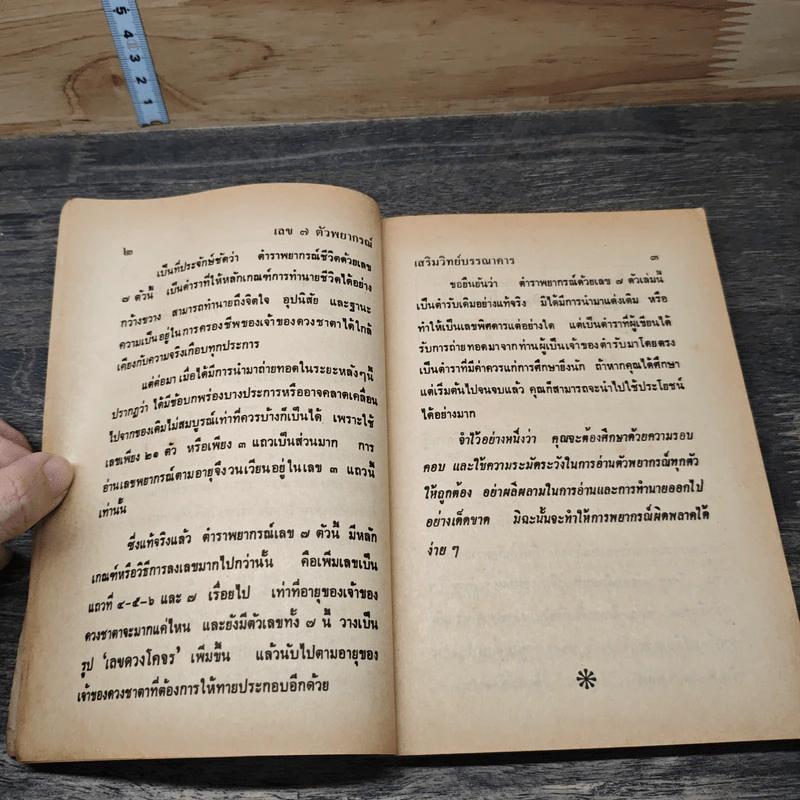 5
4
3
2
1
๒
เลข ๗ ตัวพยากรณ์
เป็นที่ประจักษ์ชัดว่า ตำราพยากรณ์ชีวิตด้วยเลข
๗ ตัวนี้ เป็นตำราที่ให้หลักเกณฑ์การทำนายชีวิตได้อย่าง
กว้างขวาง สามารถทำนายถึงจิตใจ อุปนิสัย และฐานะ
ความเป็นอยู่ในการครองชีพของเจ้าของดวงชาตาได้ใกล้
เคียงกับความจริงเกือบทุกประการ
แต่ต่อมา เมื่อได้มีการนำมาถ่ายทอดในระยะหลังๆนี้
ปรากฏว่า ได้มีข้อบกพร่องบางประการหรืออาจคลาดเคลื่อน
ไปจากของเดิมไม่สมบูรณ์เท่าที่ควรบ้างก็เป็นได้ เพราะใช้
เลขเพียง ๒๑ ตัว หรือเพียง ๓ แถวเป็นส่วนมาก การ
อ่านเลขพยากรณ์ตามอายุจึงวนเวียนอยู่ในเลข ๓ แถวนี้
เท่านั้น
ซึ่งแท้จริงแล้ว ตำราพยากรณ์เลข ๗ ตัวนี้ มีหลัก
เกณฑ์หรือวิธีการลงเลขมากไปกว่านั้น คือเพิ่มเลขเป็น
แถวที่ ๔-๕-๖ และ ๗ เรื่อยไป เท่าที่อายุของเจ้าของ
ดวงชาตาจะมากแค่ไหน และยังมีตัวเลขทั้ง ๗ นี้ วางเป็น
รูป 'เลขดวงโคจร' เพิ่มขึ้น แล้วนับไปตามอายุของ
เจ้าของดวงชาตาที่ต้องการให้ทายประกอบอีกด้วย
เสริมวิทย์บรรณาคาร
๓
ขอยืนยันว่า ตำราพยากรณ์ด้วยเลข ๗ ตัวเล่มนี้
เป็นตำรับเดิมอย่างแท้จริง มิได้มีการนำมาแต่งเติม หรือ
ทำให้เป็นเลขพิศดารแต่อย่างใด แต่เป็นตำราที่ผู้เขียนได้
รับการถ่ายทอดมาจากท่านผู้เป็นเจ้าของตำรับมาโดยตรง
เป็นตำราที่มีค่าควรแก่การศึกษายิ่งนัก ถ้าหากคุณได้ศึกษา
แต่เริ่มต้นไปจนจบแล้ว คุณก็สามารถจะนำไปใช้ประโยชน์
ได้อย่างมาก
จำไว้อย่างหนึ่งว่า คุณจะต้องศึกษาด้วยความรอบ
คอบ และใช้ความระมัดระวังในการอ่านตัวพยากรณ์ทุกตัว
ให้ถูกต้อง อย่าผลีผลามในการอ่านและการทำนายออกไป
อย่างเด็ดขาด มิฉะนั้นจะทำให้การพยากรณ์ผิดพลาดได้
ง่าย ๆ